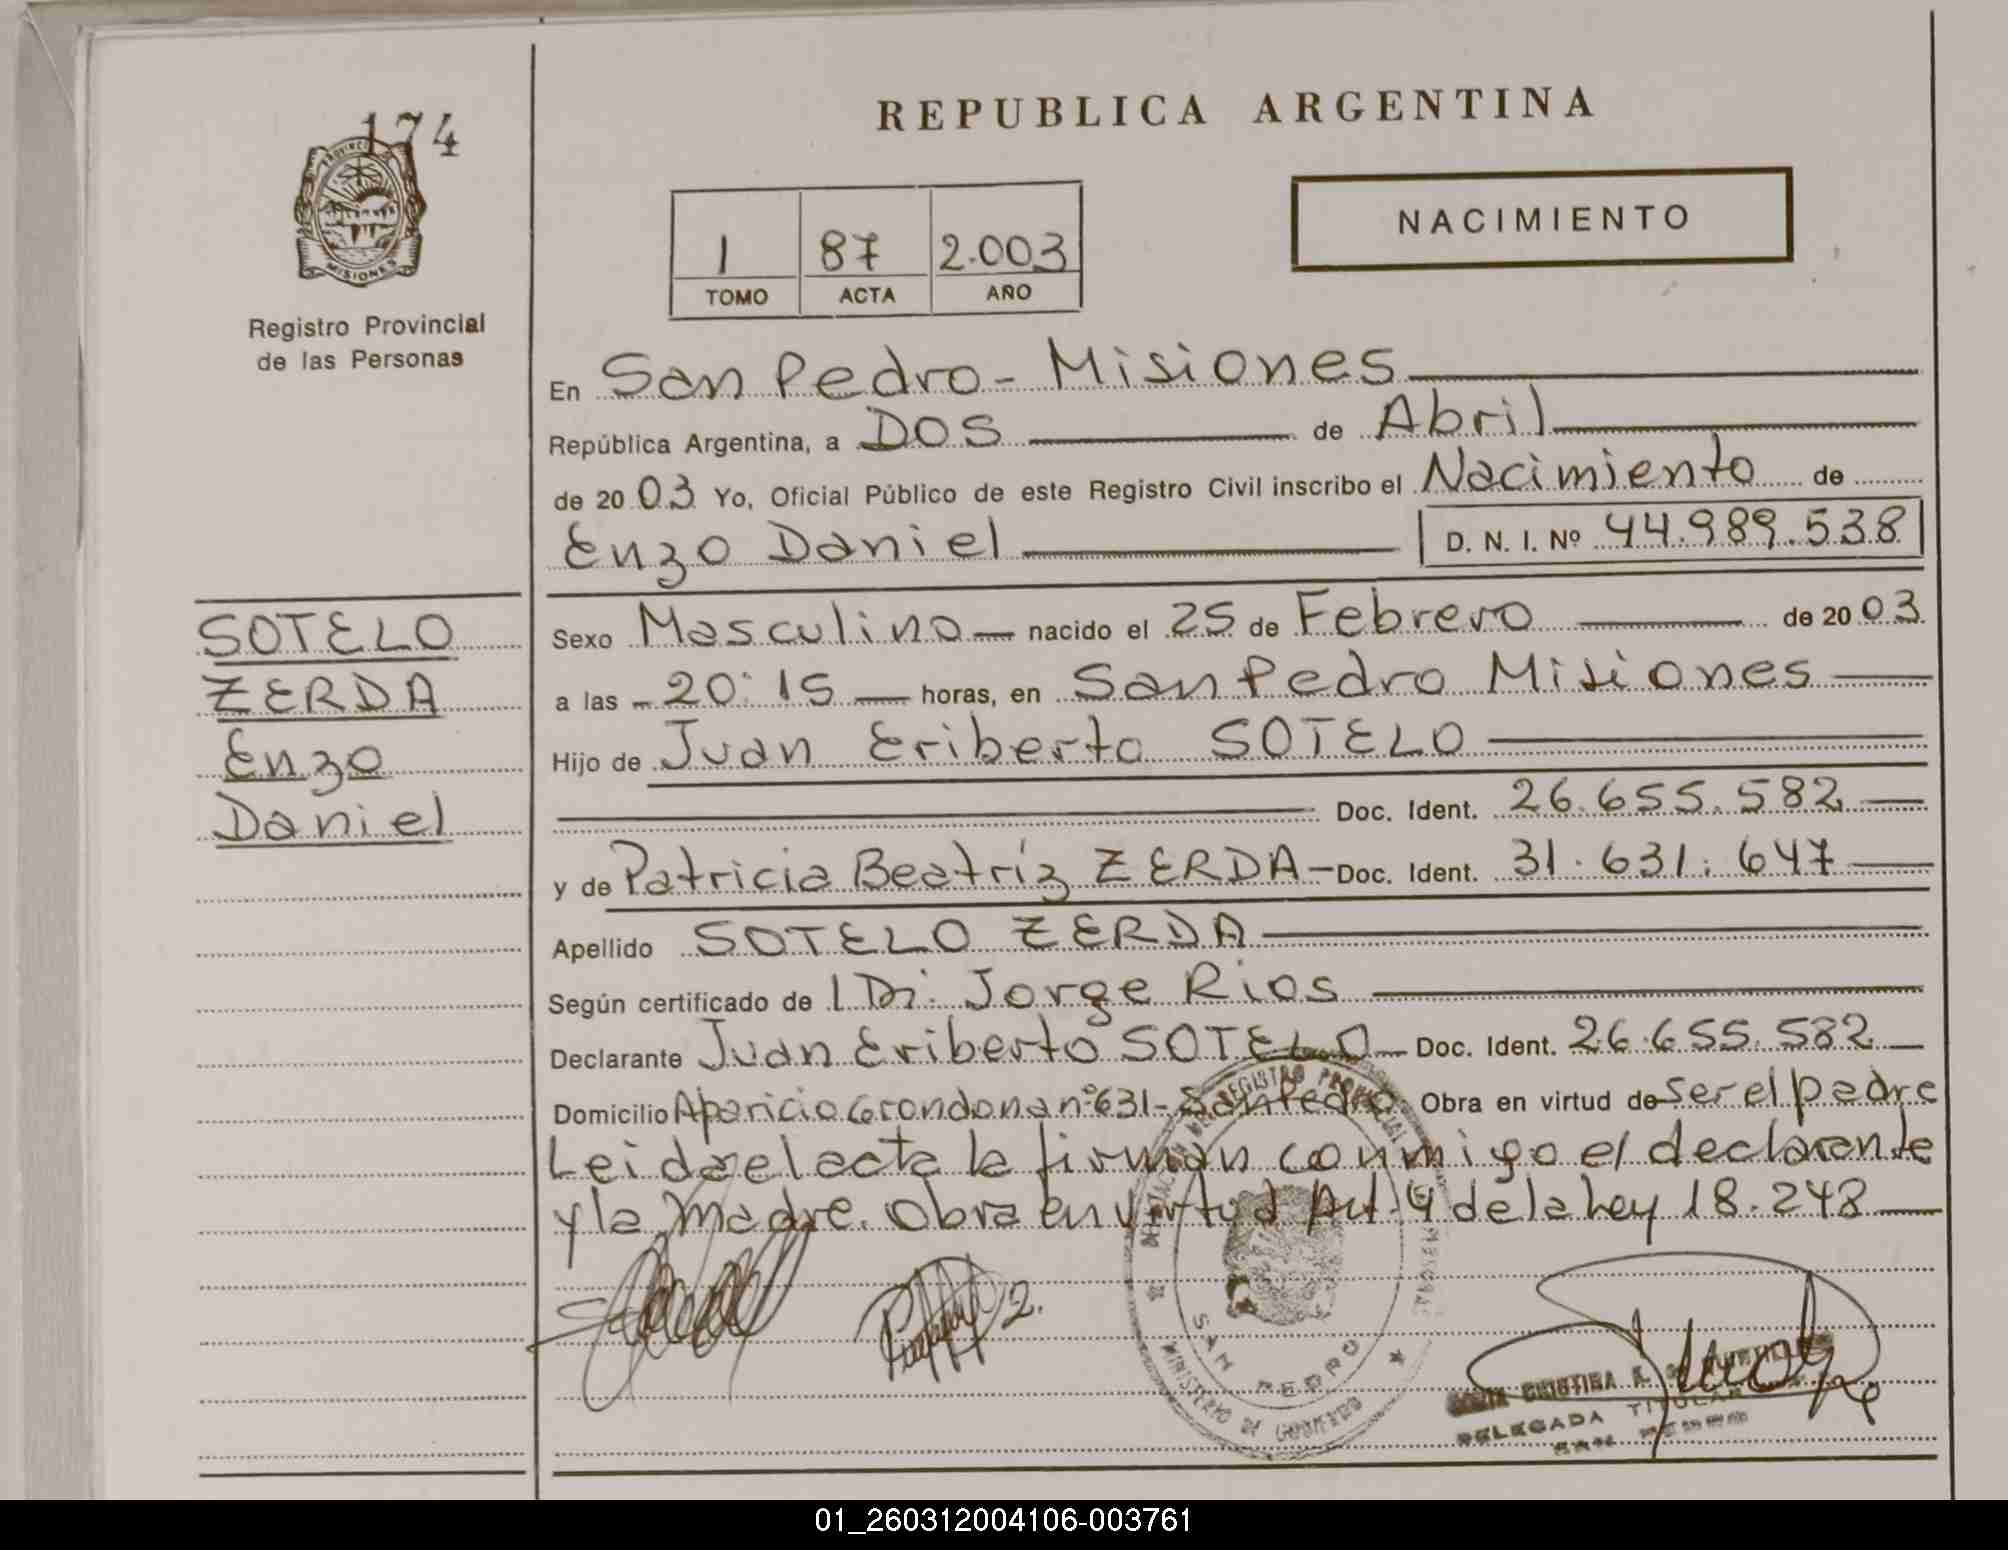 174
PROVINCIA
MISIONES
Registro Provincial
de las Personas
REPUBLICA ARGENTINA
1 87 2.003
TOMO ACTA AÑO
NACIMIENTO
En San Pedro - Misiones
República Argentina, a DOS de Abril
de 2003 Yo, Oficial Público de este Registro Civil inscribo el Nacimiento de
Enzo Daniel D. N. I. Nº 44.989.538
SOTELO
ZERDA
Enzo
Daniel
Sexo Masculino nacido el 25 de Febrero de 2003
a las 20:15 horas, en San Pedro Misiones
Hijo de Juan Eriberto SOTELO
Doc. Ident. 26.655.582
y de Patricia Beatríz ZERDA Doc. Ident. 31.631.647
Apellido SOTELO ZERDA
Según certificado de Jorge Rios
Declarante Juan Eriberto SOTELO Doc. Ident. 26.655.582
Domicilio Aparicio Grondona nº 631 - San Pedro Obra en virtud de ser el padre
Leida el acta la firman conmigo el declarante
y la madre. Obra en virtud Art. 4 de la Ley 18.248
REGISTRO PROVINCIAL
SAN PEDRO
MINISTERIO DE GOBIERNO
CRISTINA
DELEGADA TITULAR
SAN PEDRO
01_260312004106-003761